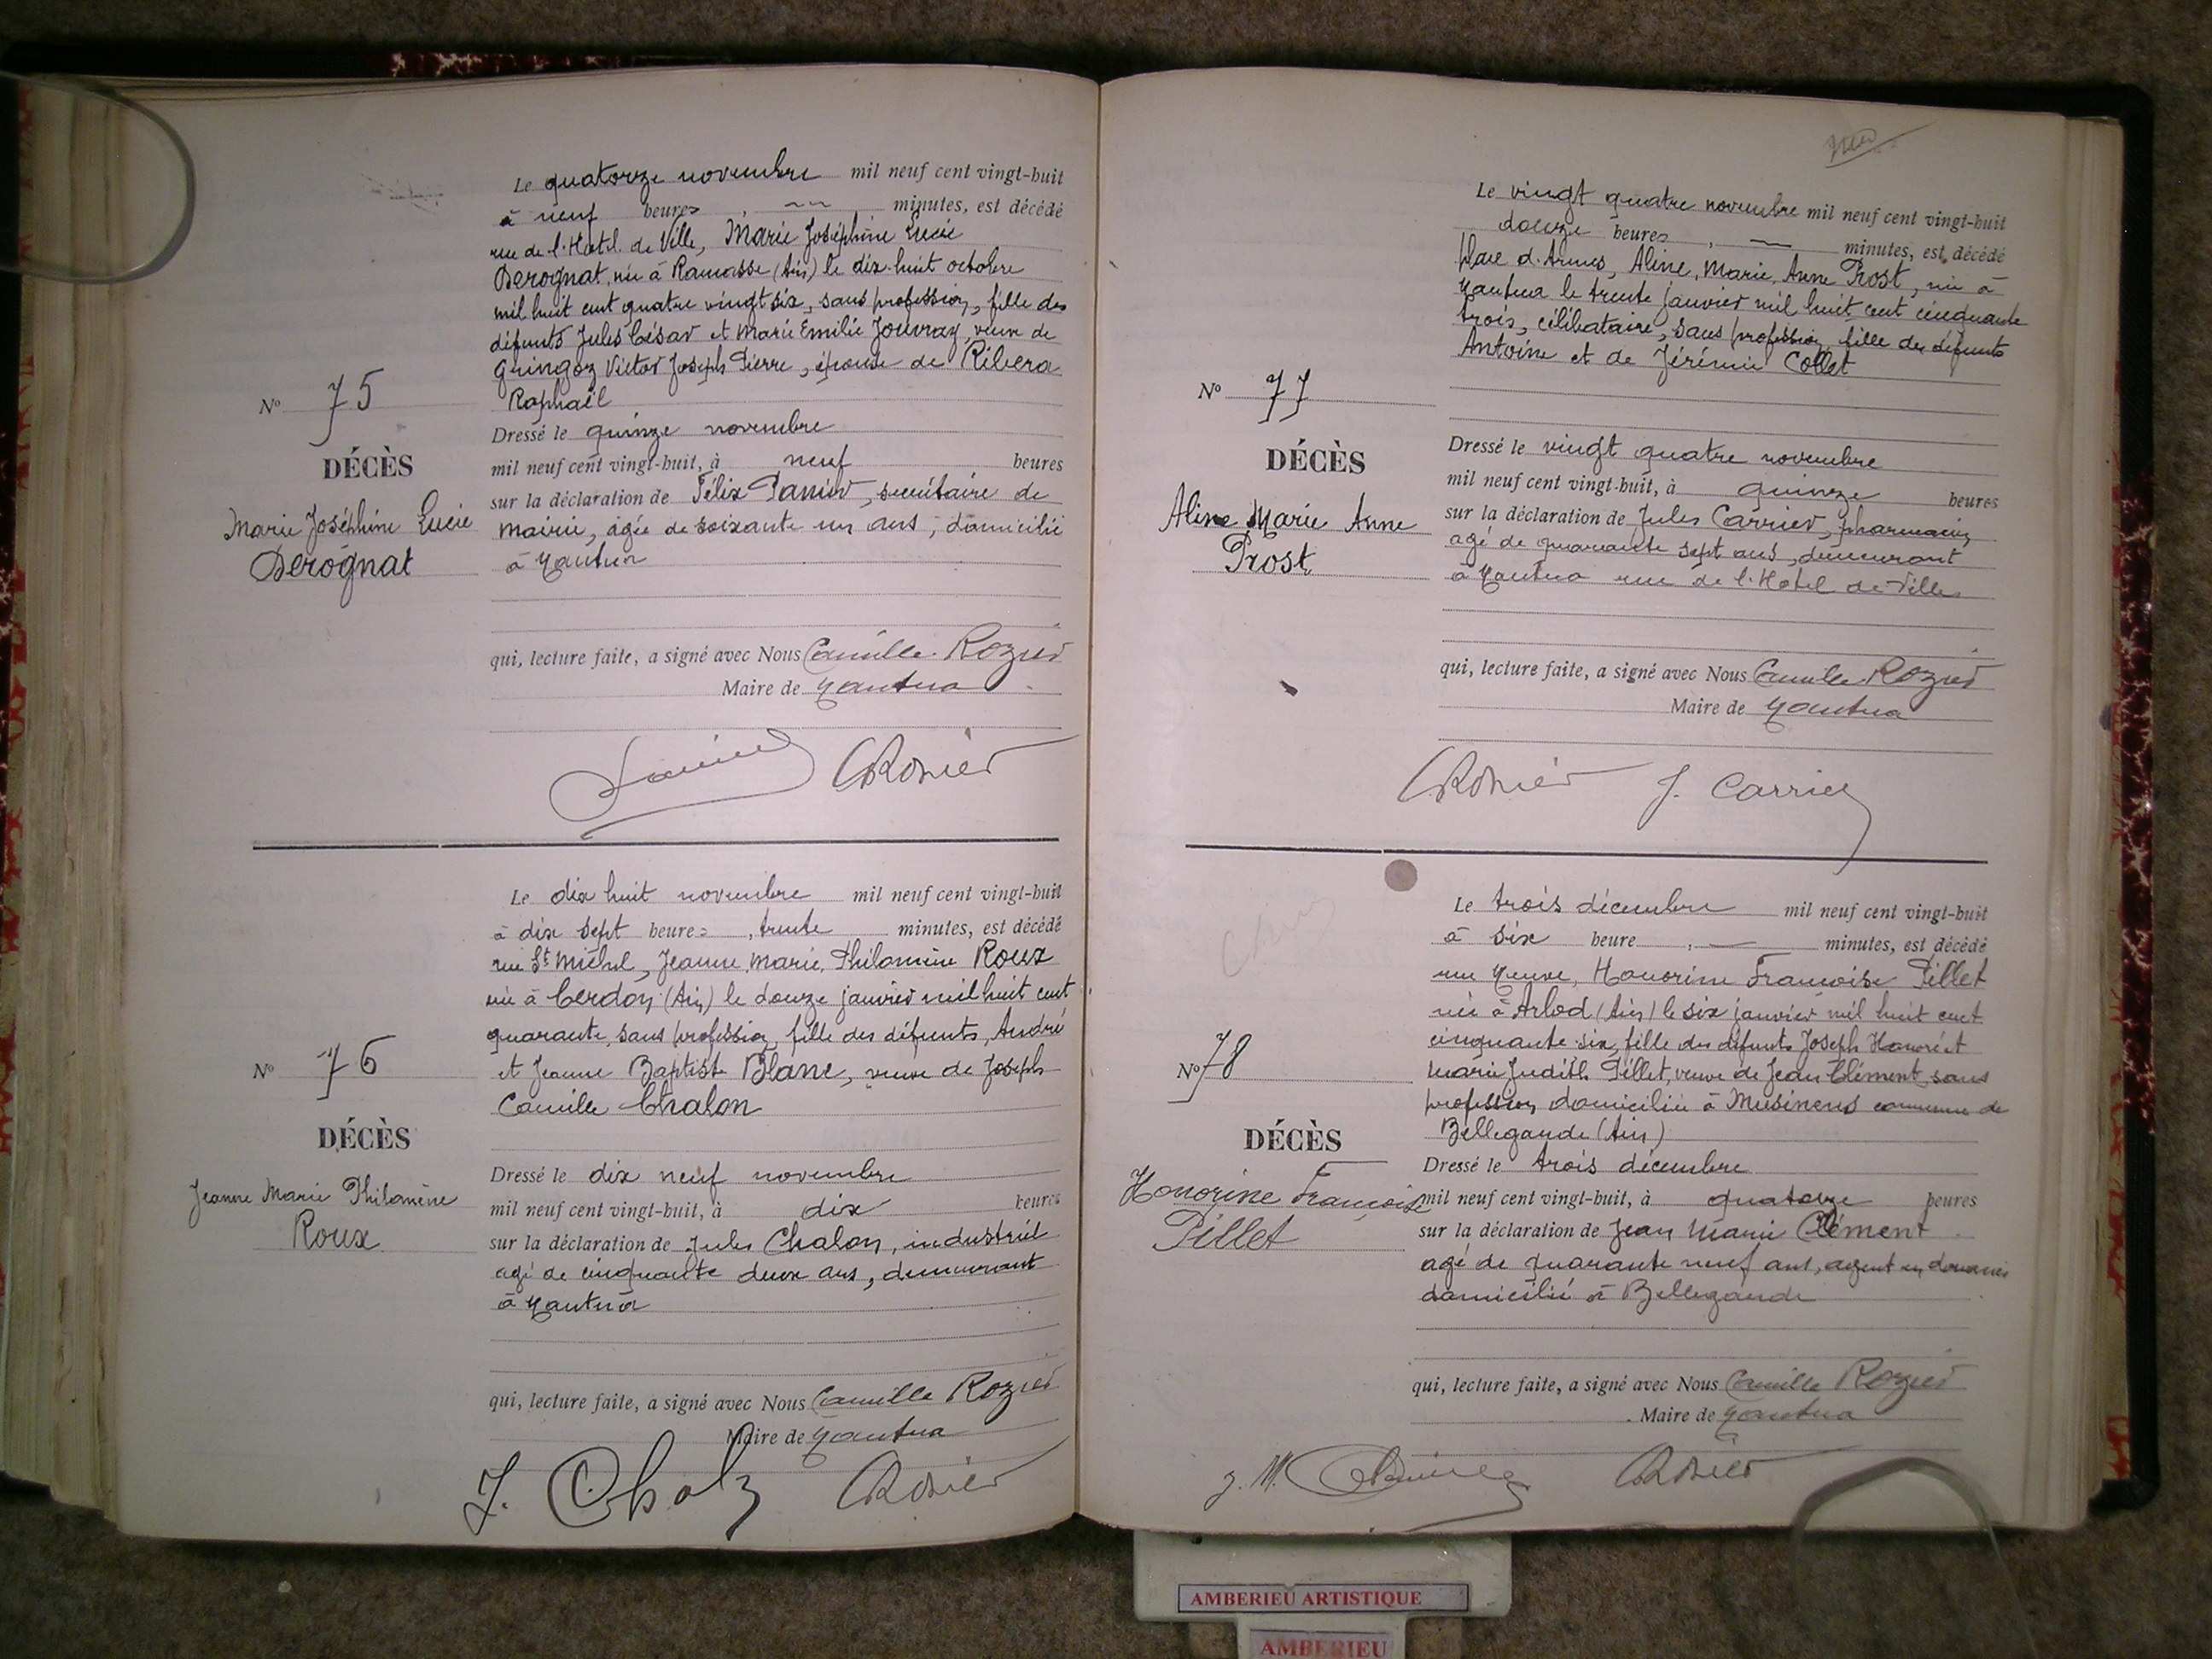 Le quatorze novembre mil neuf cent vingt-huit
à neuf heures, ~~ minutes, est décédé
rue de l'Hotel de Ville, Marie Joséphine Lucie
Derognat, née à Ramasse (Ain) le dix-huit octobre
mil huit cent quatre vingt six, sans profession, fille des
défunts Jules César et Marie Emilie Jouvray, veuve de
Guingoz Victor Joseph Pierre, épouse de Ribera
Raphaël
Nº 75
DÉCÈS
Marie Joséphine Lucie
Derognat
Dressé le quinze novembre
mil neuf cent vingt-huit, à neuf heures
sur la déclaration de Félix Panier, secrétaire de
mairie, agée de soixante un ans, domicilié
à Nantua
qui, lecture faite, a signé avec Nous Camille Rozier
Maire de Nantua
CRosier
Le dix huit novembre mil neuf cent vingt-huit
à dix sept heures, trente minutes, est décédé
rue St Michel, Jeanne, Marie, Philomène Roux
née à Cerdon (Ain) le douze janvier mil huit cent
quarante, sans profession, fille des défunts, André
et Jeanne Baptiste Blanc, veuve de Joseph
Camille Chalon
Nº 76
DÉCÈS
Jeanne Marie Philomène
Roux
Dressé le dix neuf novembre
mil neuf cent vingt-huit, à dix heures
sur la déclaration de Jules Chalon, industriel
agé de cinquante deux ans, demeurant
à Nantua
qui, lecture faite, a signé avec Nous Camille Rozier
Maire de Nantua
J. Chalon CRosier
Le vingt quatre novembre mil neuf cent vingt-huit
douze heures, — minutes, est décédé
place d'Armes, Aline, Marie, Anne Prost, née à
Nantua le trente janvier mil huit cent cinquante
trois, célibataire, sans profession, fille des défunts
Antoine et de Jérémie Collet
Nº 77
DÉCÈS
Aline Marie Anne
Prost
Dressé le vingt quatre novembre
mil neuf cent vingt-huit, à quinze heures
sur la déclaration de Jules Carrier, pharmacien
agé de quarante sept ans, demeurant
à Nantua rue de l'Hotel de Ville
qui, lecture faite, a signé avec Nous Camille Rozier
Maire de Nantua
CRosier J. Carrier
Le trois décembre mil neuf cent vingt-huit
à six heure, — minutes, est décédé
rue Neuve, Honorine Francoise Pillet
née à Arlod (Ain) le six janvier mil huit cent
cinquante six, fille des défunts Joseph Honoré et
Marie Judith Pillet, veuve de Jean Clément, sans
profession domiciliée à Musinens commune de
Bellegarde (Ain)
Nº 78
DÉCÈS
Honorine Francoise
Pillet
Dressé le trois décembre
mil neuf cent vingt-huit, à quatorze heures
sur la déclaration de Jean Marie Clément
agé de quarante neuf ans, agent en douanes
domicilié à Bellegarde
qui, lecture faite, a signé avec Nous Camille Rozier
Maire de Nantua
J. M. Clément CRosier
AMBERIEU ARTISTIQUE
AMBERIEU